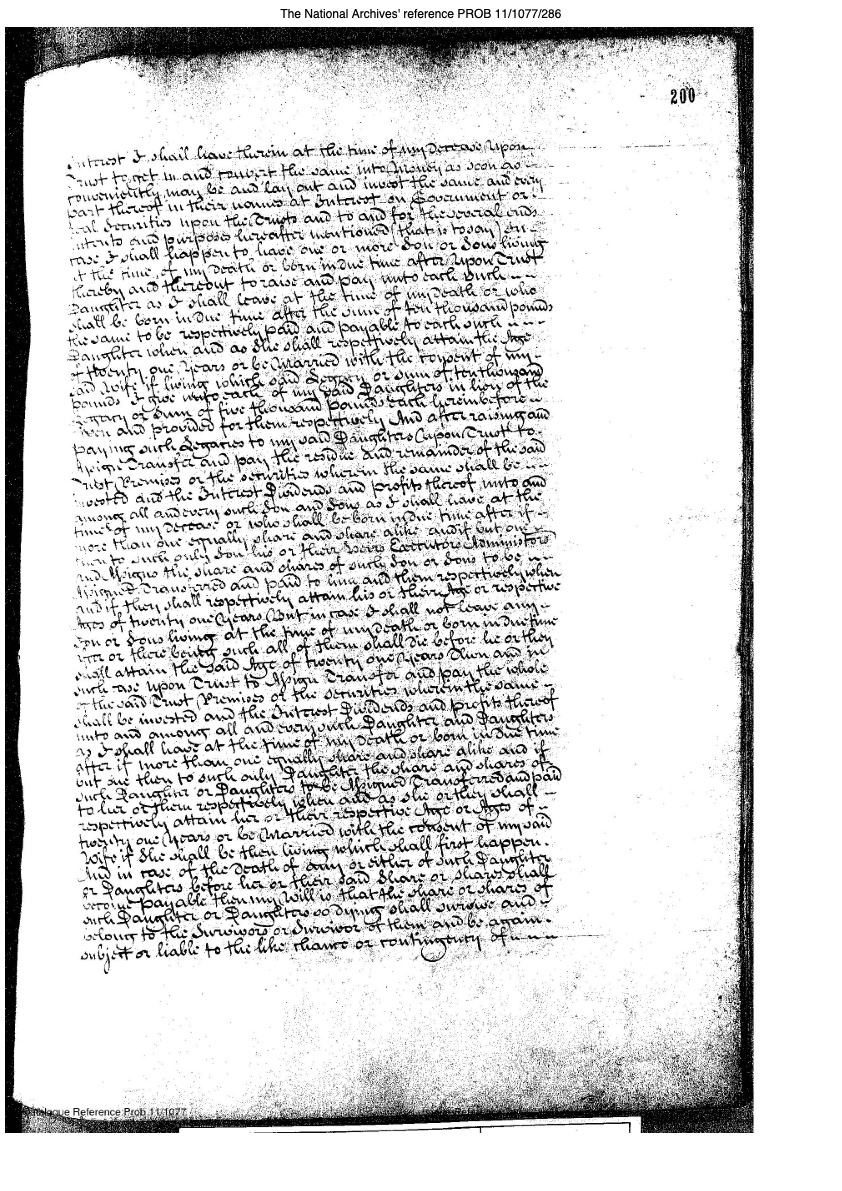 The National Archives' reference PROB 11/1077/286
200
Interest I shall have therein at the time of my Decease Upon
Trust to get in and convert the same into Money as soon as
conveniently may be and lay out and invest the same and every
part thereof in their names at Interest on Government or
Real Securities upon the Trusts and to and for the several ends
intents and purposes hereafter mentioned (that is to say) in
case I shall happen to have one or more Son or Sons living
at the time of my Death or born in due time after Upon Trust
thereby and thereout to raise and pay unto each such
Daughter as I shall leave at the time of my Death or who
shall be born in due time after the sum of ten thousand pounds
the same to be respectively paid and payable to each such
Daughter when and as she shall respectively attain the Age
of twenty one Years or be Married with the consent of my
said Wife if living which said Legacy or sum of ten thousand
pounds I give unto each of my said Daughters in lieu of the
Legacy or Sum of five thousand Pounds each hereinbefore
given and provided for them respectively And after raising and
paying such Legacies to my said Daughters Upon Trust to
Assign Transfer and pay the residue and remainder of the said
Trust Premises or the securities wherein the same shall be
invested and the Interest Dividends and profits thereof unto and
among all and every such Son and Sons as I shall have at the
time of my Decease or who shall be born in due time after if
more than one equally share and share alike and if but one
then to such only Son his or their Heirs Executors Administrators
and Assigns the share and shares of such Son or Sons to be
Assigned Transferred and paid to him and them respectively when
and if they shall respectively attain his or their Age or respective
Ages of twenty one Years But in case I shall not leave any
Son or Sons living at the time of my Death or born in due time
after or there being such all of them shall die before he or they
shall attain the said Age of twenty one Years Then and in
such case upon Trust to Assign Transfer and pay the whole
of the said Trust Premises or the securities wherein the same
shall be invested and the Interest Dividends and profits thereof
unto and among all and every such Daughter and Daughters
as I shall have at the time of my Death or born in due time
after if more than one equally share and share alike and if
but one then to such only Daughter the share and shares of
such Daughter or Daughters to be Assigned Transferred and paid
to her or them respectively when and as she or they shall
respectively attain her or their respective Age or Ages of
twenty one Years or be Married with the consent of my said
Wife if She shall be then living which shall first happen.
And in case of the Death of any or either of such Daughter
or Daughters before her or their said Share or shares shall
become payable then my Will is that the share or shares of
such Daughter or Daughters so dying shall survive and
belong to the Survivors or Survivor of them and be again
subject or liable to the like chance or contingency of
Catalogue Reference:Prob 11/1077